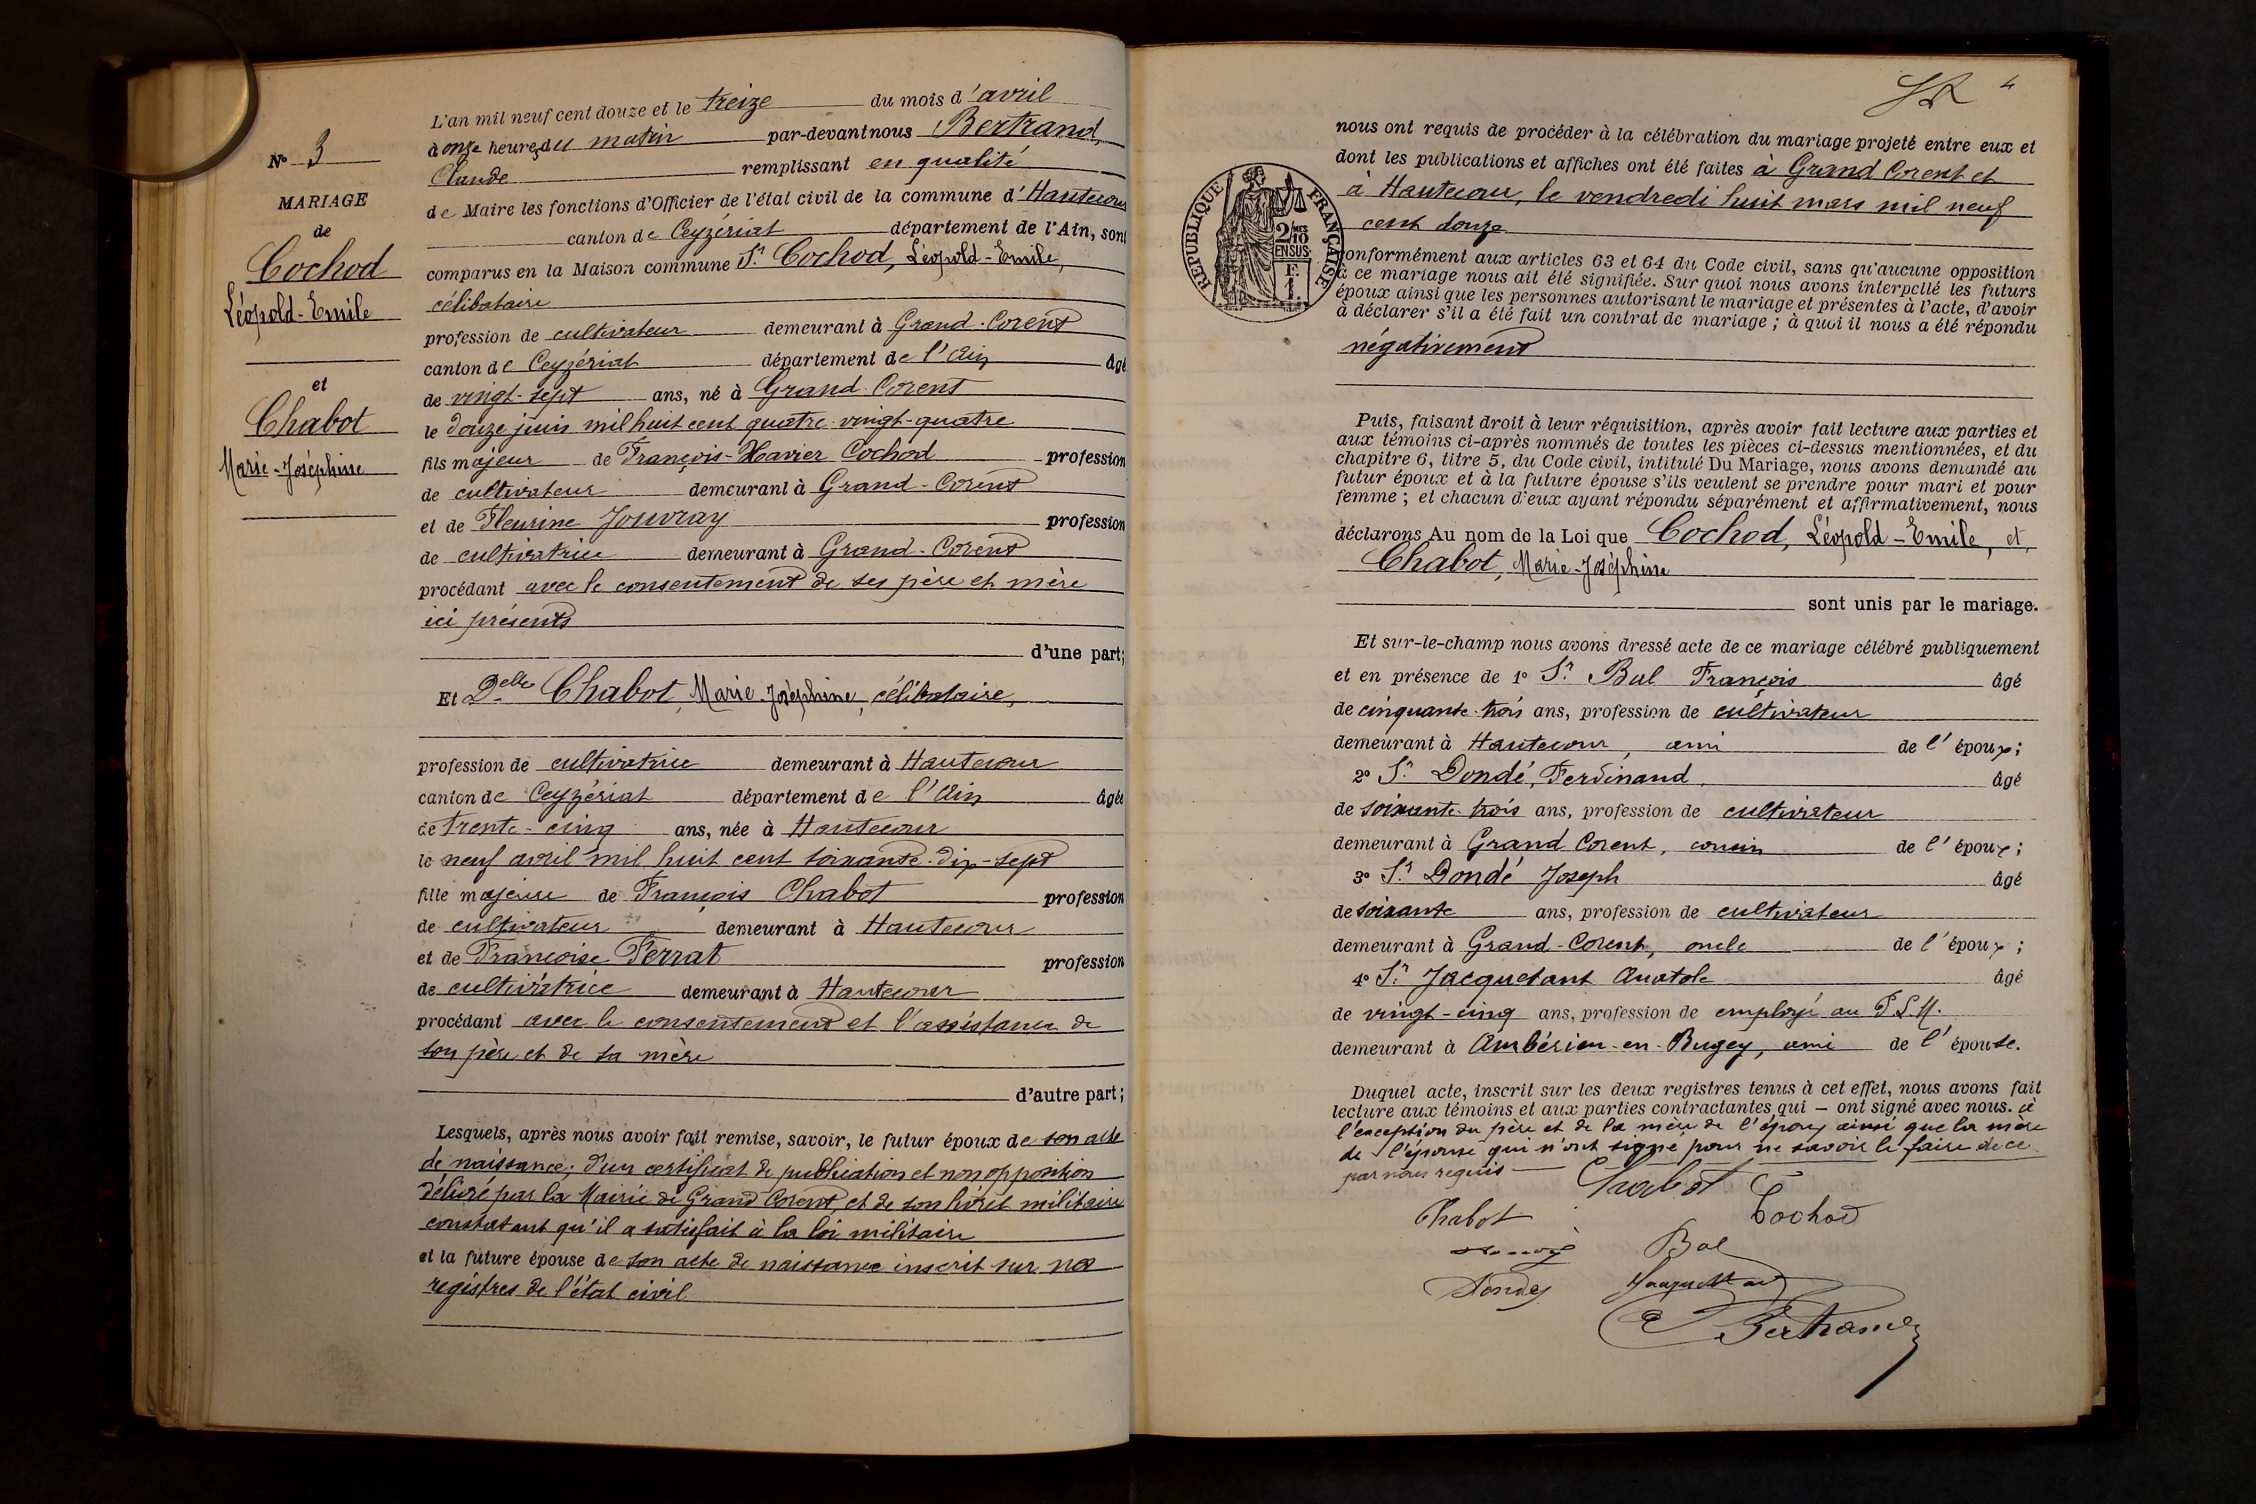 N° 3
MARIAGE
de
Cochod
Léopold-Emile
et
Chabot
Marie-Joséphine
L'an mil neuf cent douze et le treize du mois d'avril
à onze heures du matin par-devant nous Bertrand,
Claude remplissant en qualité
de Maire les fonctions d'Officier de l'état civil de la commune d'Hautecour
canton de Ceyzériat département de l'Ain, sont
comparus en la Maison commune Sr Cochod, Léopold-Emile,
célibataire
profession de cultivateur demeurant à Grand-Corent
canton de Ceyzériat département de l'Ain âgé
de vingt-sept ans, né à Grand-Corent
le douze juin mil huit cent quatre-vingt-quatre
fils majeur de François-Xavier Cochod profession
de cultivateur demeurant à Grand-Corent
et de Fleurine Jouvray profession
de cultivatrice demeurant à Grand-Corent
procédant avec le consentement de ses père et mère
ici présents
d'une part;
Et Delle Chabot, Marie-Joséphine, célibataire,
profession de cultivatrice demeurant à Hautecour
canton de Ceyzériat département de l'Ain âgée
de trente-cinq ans, née à Hautecour
le neuf avril mil huit cent soixante-dix-sept
fille majeure de François Chabot profession
de cultivateur demeurant à Hautecour
et de Françoise Ferrat profession
de cultivatrice demeurant à Hautecour
procédant avec le consentement et l'assistance de
son père et de sa mère
d'autre part;
Lesquels, après nous avoir fait remise, savoir, le futur époux de son acte
de naissance; d'un certificat de publication et non opposition
délivré par la Mairie de Grand Corent, et de son livret militaire
constatant qu'il a satisfait à la loi militaire
et la future épouse de son acte de naissance inscrit sur nos
registres de l'état civil
4
nous ont requis de procéder à la célébration du mariage projeté entre eux et
dont les publications et affiches ont été faites à Grand Corent et
à Hautecour, le vendredi huit mars mil neuf
cent douze
RÉPUBLIQUE FRANÇAISE
2/10 MES
EN SUS
F.
1.
conformément aux articles 63 et 64 du Code civil, sans qu'aucune opposition
à ce mariage nous ait été signifiée. Sur quoi nous avons interpellé les futurs
époux ainsi que les personnes autorisant le mariage et présentes à l'acte, d'avoir
à déclarer s'il a été fait un contrat de mariage; à quoi il nous a été répondu
négativement
Puis, faisant droit à leur réquisition, après avoir fait lecture aux parties et
aux témoins ci-après nommés de toutes les pièces ci-dessus mentionnées, et du
chapitre 6, titre 5, du Code civil, intitulé Du Mariage, nous avons demandé au
futur époux et à la future épouse s'ils veulent se prendre pour mari et pour
femme; et chacun d'eux ayant répondu séparément et affirmativement, nous
déclarons Au nom de la Loi que Cochod, Léopold-Emile, et,
Chabot, Marie-Joséphine
sont unis par le mariage.
Et sur-le-champ nous avons dressé acte de ce mariage célébré publiquement
et en présence de 1° Sr Bal François âgé
de cinquante-trois ans, profession de cultivateur
demeurant à Hautecour, ami de l'époux;
2° Sr Dondé, Ferdinand âgé
de soixante-trois ans, profession de cultivateur
demeurant à Grand Corent, cousin de l'époux;
3° Sr Dondé Joseph âgé
de soixante ans, profession de cultivateur
demeurant à Grand-Corent, oncle de l'époux;
4° Sr Jacquetant Anatole âgé
de vingt-cinq ans, profession de employé au P.L.M.
demeurant à Ambérieu-en-Bugey, ami de l'épouse.
Duquel acte, inscrit sur les deux registres tenus à cet effet, nous avons fait
lecture aux témoins et aux parties contractantes qui — ont signé avec nous. à
l'exception du père et de la mère de l'époux ainsi que la mère
de l'épouse qui n'ont signé pour ne savoir le faire de ce
par nous requis
Chabot
Chabot Cochod
Bal
Dondé Jacquetant
Bertrand